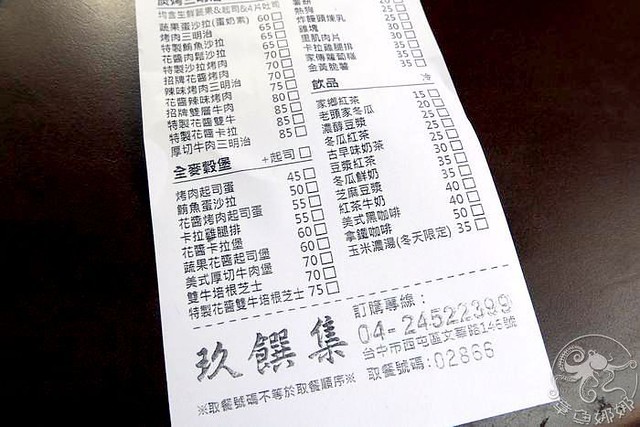 炭烤三明治
均含生鮮蔬果&起司&4片吐司
蔬果蛋沙拉(蛋奶素) 60
烤肉三明治 65
特製鮪魚沙拉 65
花醬肉鬆沙拉 65
特製沙拉烤肉 70
招牌花醬烤肉 70
辣味烤肉三明治 75
花醬辣味烤肉 80
招牌雙層牛肉 80
特製花醬雙牛 85
特製花醬卡拉 85
厚切牛肉三明治 85
全麥穀堡 +起司
烤肉起司蛋 45
鮪魚蛋沙拉 50
花醬烤肉起司蛋 55
卡拉雞腿排 55
花醬卡拉堡 60
蔬果花醬起司堡 60
美式厚切牛肉堡 70
雙牛培根芝士 70
特製花醬雙牛培根芝士 75
熱狗
炸饅頭煉乳 25
雞塊 30
里肌肉片 30
卡拉雞腿排 35
家傳蘿蔔糕 30
金黃脆薯 35
飲品 冷
家鄉紅茶 15
老頭家冬瓜 20
濃醇豆漿 25
冬瓜紅茶 25
古早味奶茶 25
豆漿紅茶 30
冬瓜鮮奶 25
芝麻豆漿 35
紅茶牛奶 30
美式黑咖啡 40
拿鐵咖啡 50
玉米濃湯(冬天限定) 35
玖饌集
訂購專線:
04-24522399
台中市西屯區文華路146號
取餐號碼:02866
※取餐號碼不等於取餐順序※
章魚娜娜